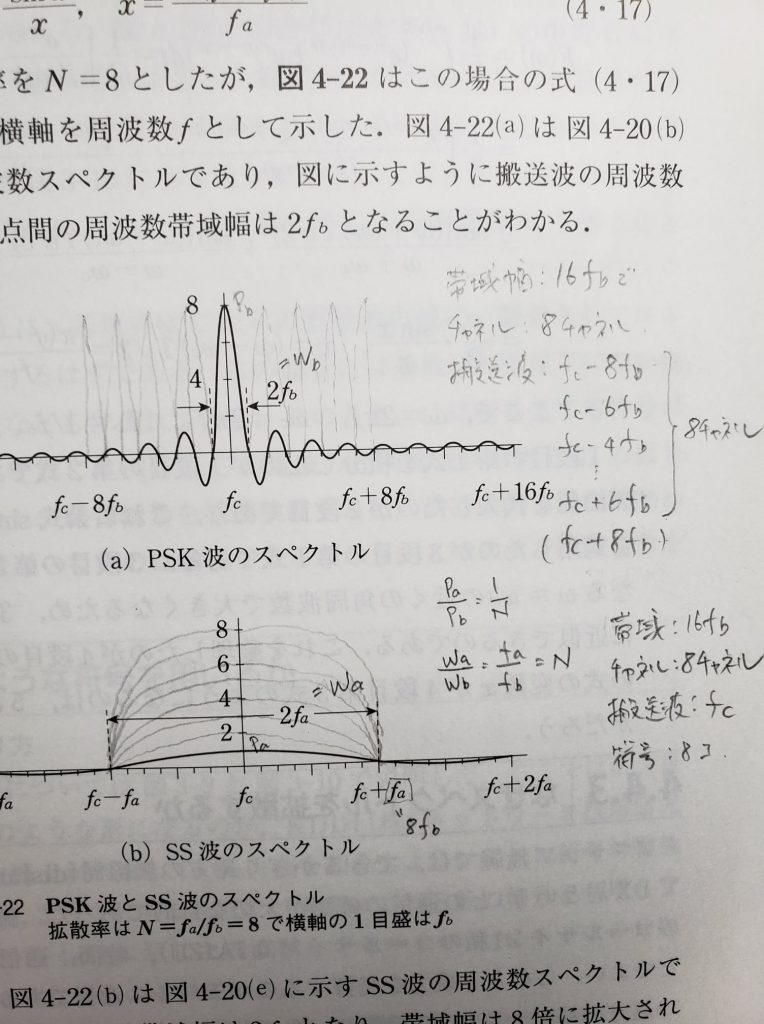 x, x=
fa
(4・17)
率を N=8 としたが，図 4-22 はこの場合の式 (4・17)
横軸を周波数 f として示した．図 4-22(a) は 図 4-20(b)
数スペクトルであり，図に示すように搬送波の周波数
点間の周波数帯域幅は 2fb となることがわかる．
帯域幅：16fbで
チャネル：8チャネル．
搬送波：fc-8fb
fc-6fb
fc-4fb
⋮
fc+6fb
(fc+8fb)
8チャネル
8
Pb
4
=Wb
2fb
fc-8fb fc fc+8fb fc+16fb
(a) PSK 波のスペクトル
Pa/Pb = 1/N
Wa/Wb = fa/fb = N
帯域：16fb
チャネル：8チャネル
搬送波：fc
符号：8コ
8
6
4
2
=Wa
2fa
Pa
fa fc-fa fc fc+fa fc+2fa
"8fb
(b) SS 波のスペクトル
-22 PSK 波と SS 波のスペクトル
拡散率は N=fa/fb=8 で横軸の 1 目盛は fb
図 4-22(b) は 図 4-20(e) に示す SS 波の周波数スペクトルで
は 2fa となり，帯域幅は 8 倍に拡大され